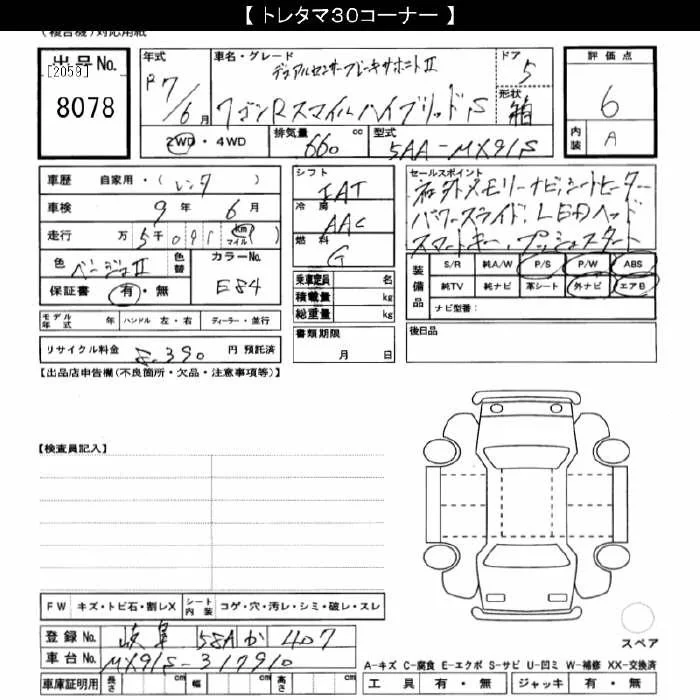 【 トレタマ30コーナー 】
(複合機)対応用紙
出品No. [2059] 8078
年式 R7/6月
車名・グレード デュアルセンサーブレーキサポートⅡ ワゴンRスマイルハイブリッドS
ドア 5
形状 箱
評価点 6
内装 A
2WD・4WD
排気量 660 cc
型式 5AA-MX91S
車歴 自家用・( レンタ )
車検 9年 6月
走行 万 5千091 (km マイル)
色 ベージュⅡ 色替 カラーNo. E84
保証書 有・無
シフト IAT
冷房 AAC
燃料 G
セールスポイント
社外メモリーナビ,シートヒーター
パワースライド,LEDヘッド
スマートキー,プッシュスタート
装備品 S/R 純A/W P/S P/W ABS
純TV 純ナビ 革シート 外ナビ エアB
ナビ型番:
乗車定員 名
積載量 kg
総重量 kg
モデル年式 年 ハンドル 左・右 ディーラー・並行
書類期限 月 日
後日品
リサイクル料金 8.390 円 預託済
【出品店申告欄(不良箇所・欠品・注意事項等)】
【検査員記入】
FW キズ・トビ石・割レX シート内装 コゲ・穴・汚レ・シミ・破レ・スレ
登録No. 岐阜 581 あ か 407
車台No. MX91S-317910
車庫証明用 長さ cm 幅 cm 高さ cm
スペア
A-キズ C-腐食 E-エクボ S-サビ U-凹ミ W-補修 XX-交換済
工具 有・無 ジャッキ 有・無